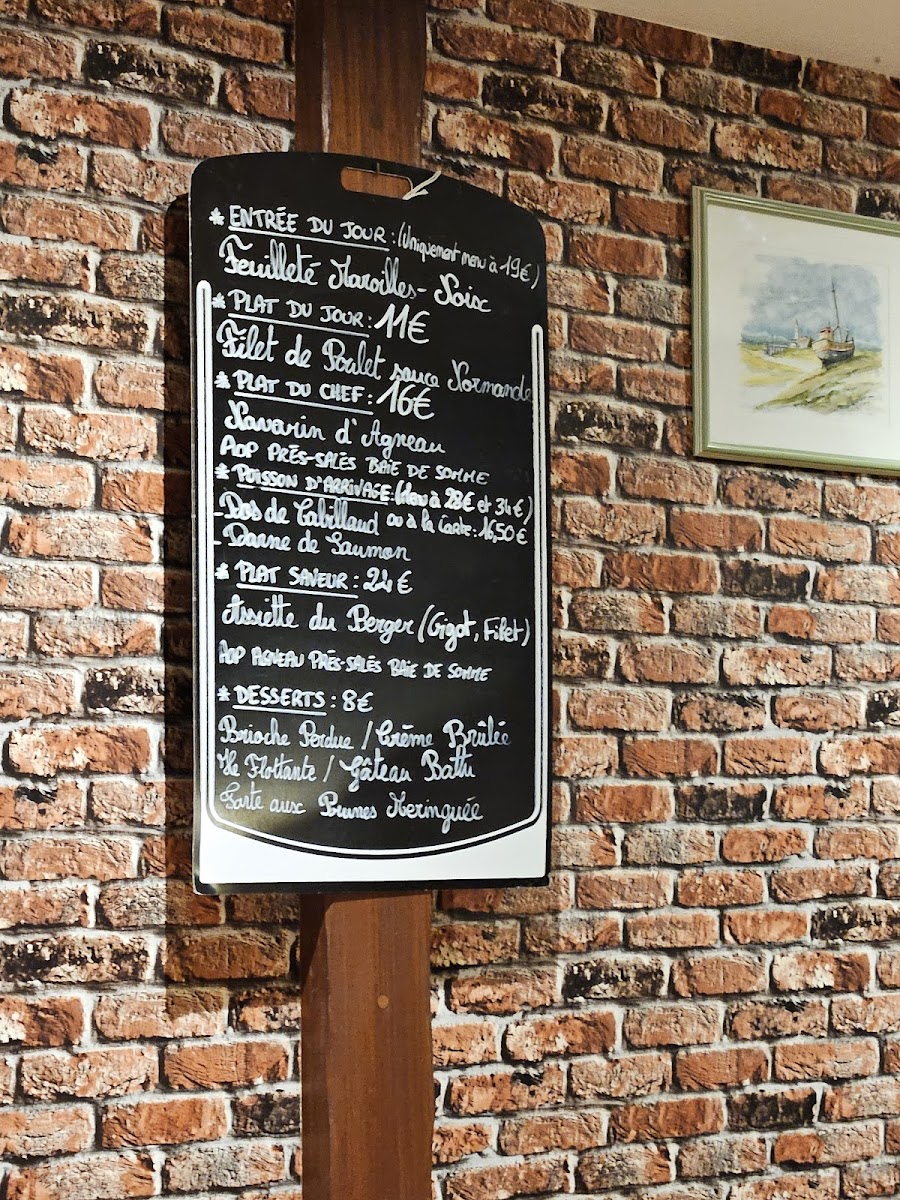 * ENTRÉE DU JOUR : (Uniquement menu à 19€)
Feuilleté Maroilles - Noix
* PLAT DU JOUR : 11€
Filet de Poulet sauce Normande
* PLAT DU CHEF : 16€
Navarin d'Agneau
AOP PRÉS-SALÉS BAIE DE SOMME
* POISSON D'ARRIVAGE : (Menu à 28€ et 34€)
- Dos de Cabillaud ou à la Carte : 16,50€
- Darne de Saumon
* PLAT SAVEUR : 24€
Assiette du Berger (Gigot, Filet)
AOP AGNEAU PRÉS-SALÉS BAIE DE SOMME
* DESSERTS : 8€
Brioche Perdue / Crème Brûlée
Ile Flottante / Gâteau Battu
Tarte aux Prunes Meringuée